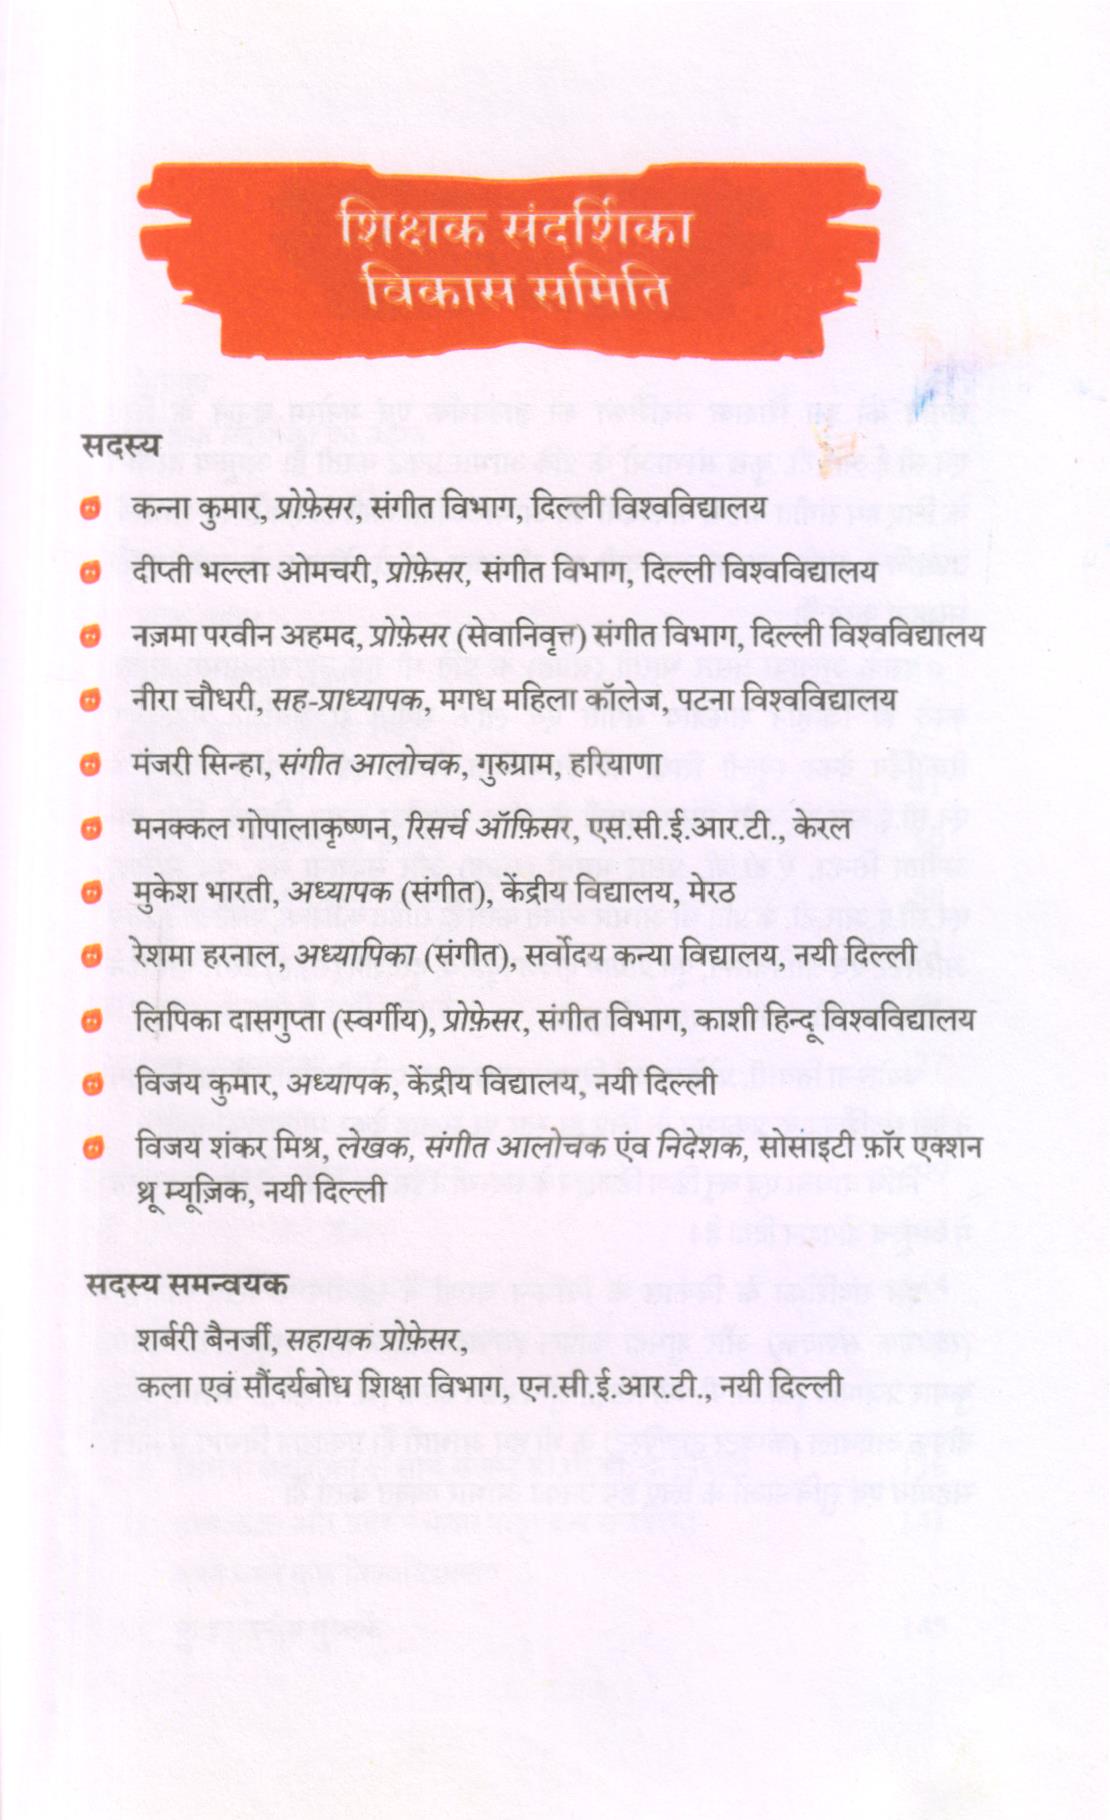 शिक्षक संदर्शिका
विकास समिति
सदस्य
कन्ना कुमार, प्रोफ़ेसर, संगीत विभाग, दिल्ली विश्वविद्यालय
दीप्ती भल्ला ओमचरी, प्रोफ़ेसर, संगीत विभाग, दिल्ली विश्वविद्यालय
नज़मा परवीन अहमद, प्रोफ़ेसर (सेवानिवृत्त) संगीत विभाग, दिल्ली विश्वविद्यालय
नीरा चौधरी, सह-प्राध्यापक, मगध महिला कॉलेज, पटना विश्वविद्यालय
मंजरी सिन्हा, संगीत आलोचक, गुरुग्राम, हरियाणा
मनक्कल गोपालाकृष्णन, रिसर्च ऑफ़िसर, एस.सी.ई.आर.टी., केरल
मुकेश भारती, अध्यापक (संगीत), केंद्रीय विद्यालय, मेरठ
रेशमा हरनाल, अध्यापिका (संगीत), सर्वोदय कन्या विद्यालय, नयी दिल्ली
लिपिका दासगुप्ता (स्वर्गीय), प्रोफ़ेसर, संगीत विभाग, काशी हिन्दू विश्वविद्यालय
विजय कुमार, अध्यापक, केंद्रीय विद्यालय, नयी दिल्ली
विजय शंकर मिश्र, लेखक, संगीत आलोचक एंव निदेशक, सोसाइटी फ़ॉर एक्शन
थ्रू म्यूज़िक, नयी दिल्ली
सदस्य समन्वयक
शर्बरी बैनर्जी, सहायक प्रोफ़ेसर,
कला एवं सौंदर्यबोध शिक्षा विभाग, एन.सी.ई.आर.टी., नयी दिल्ली